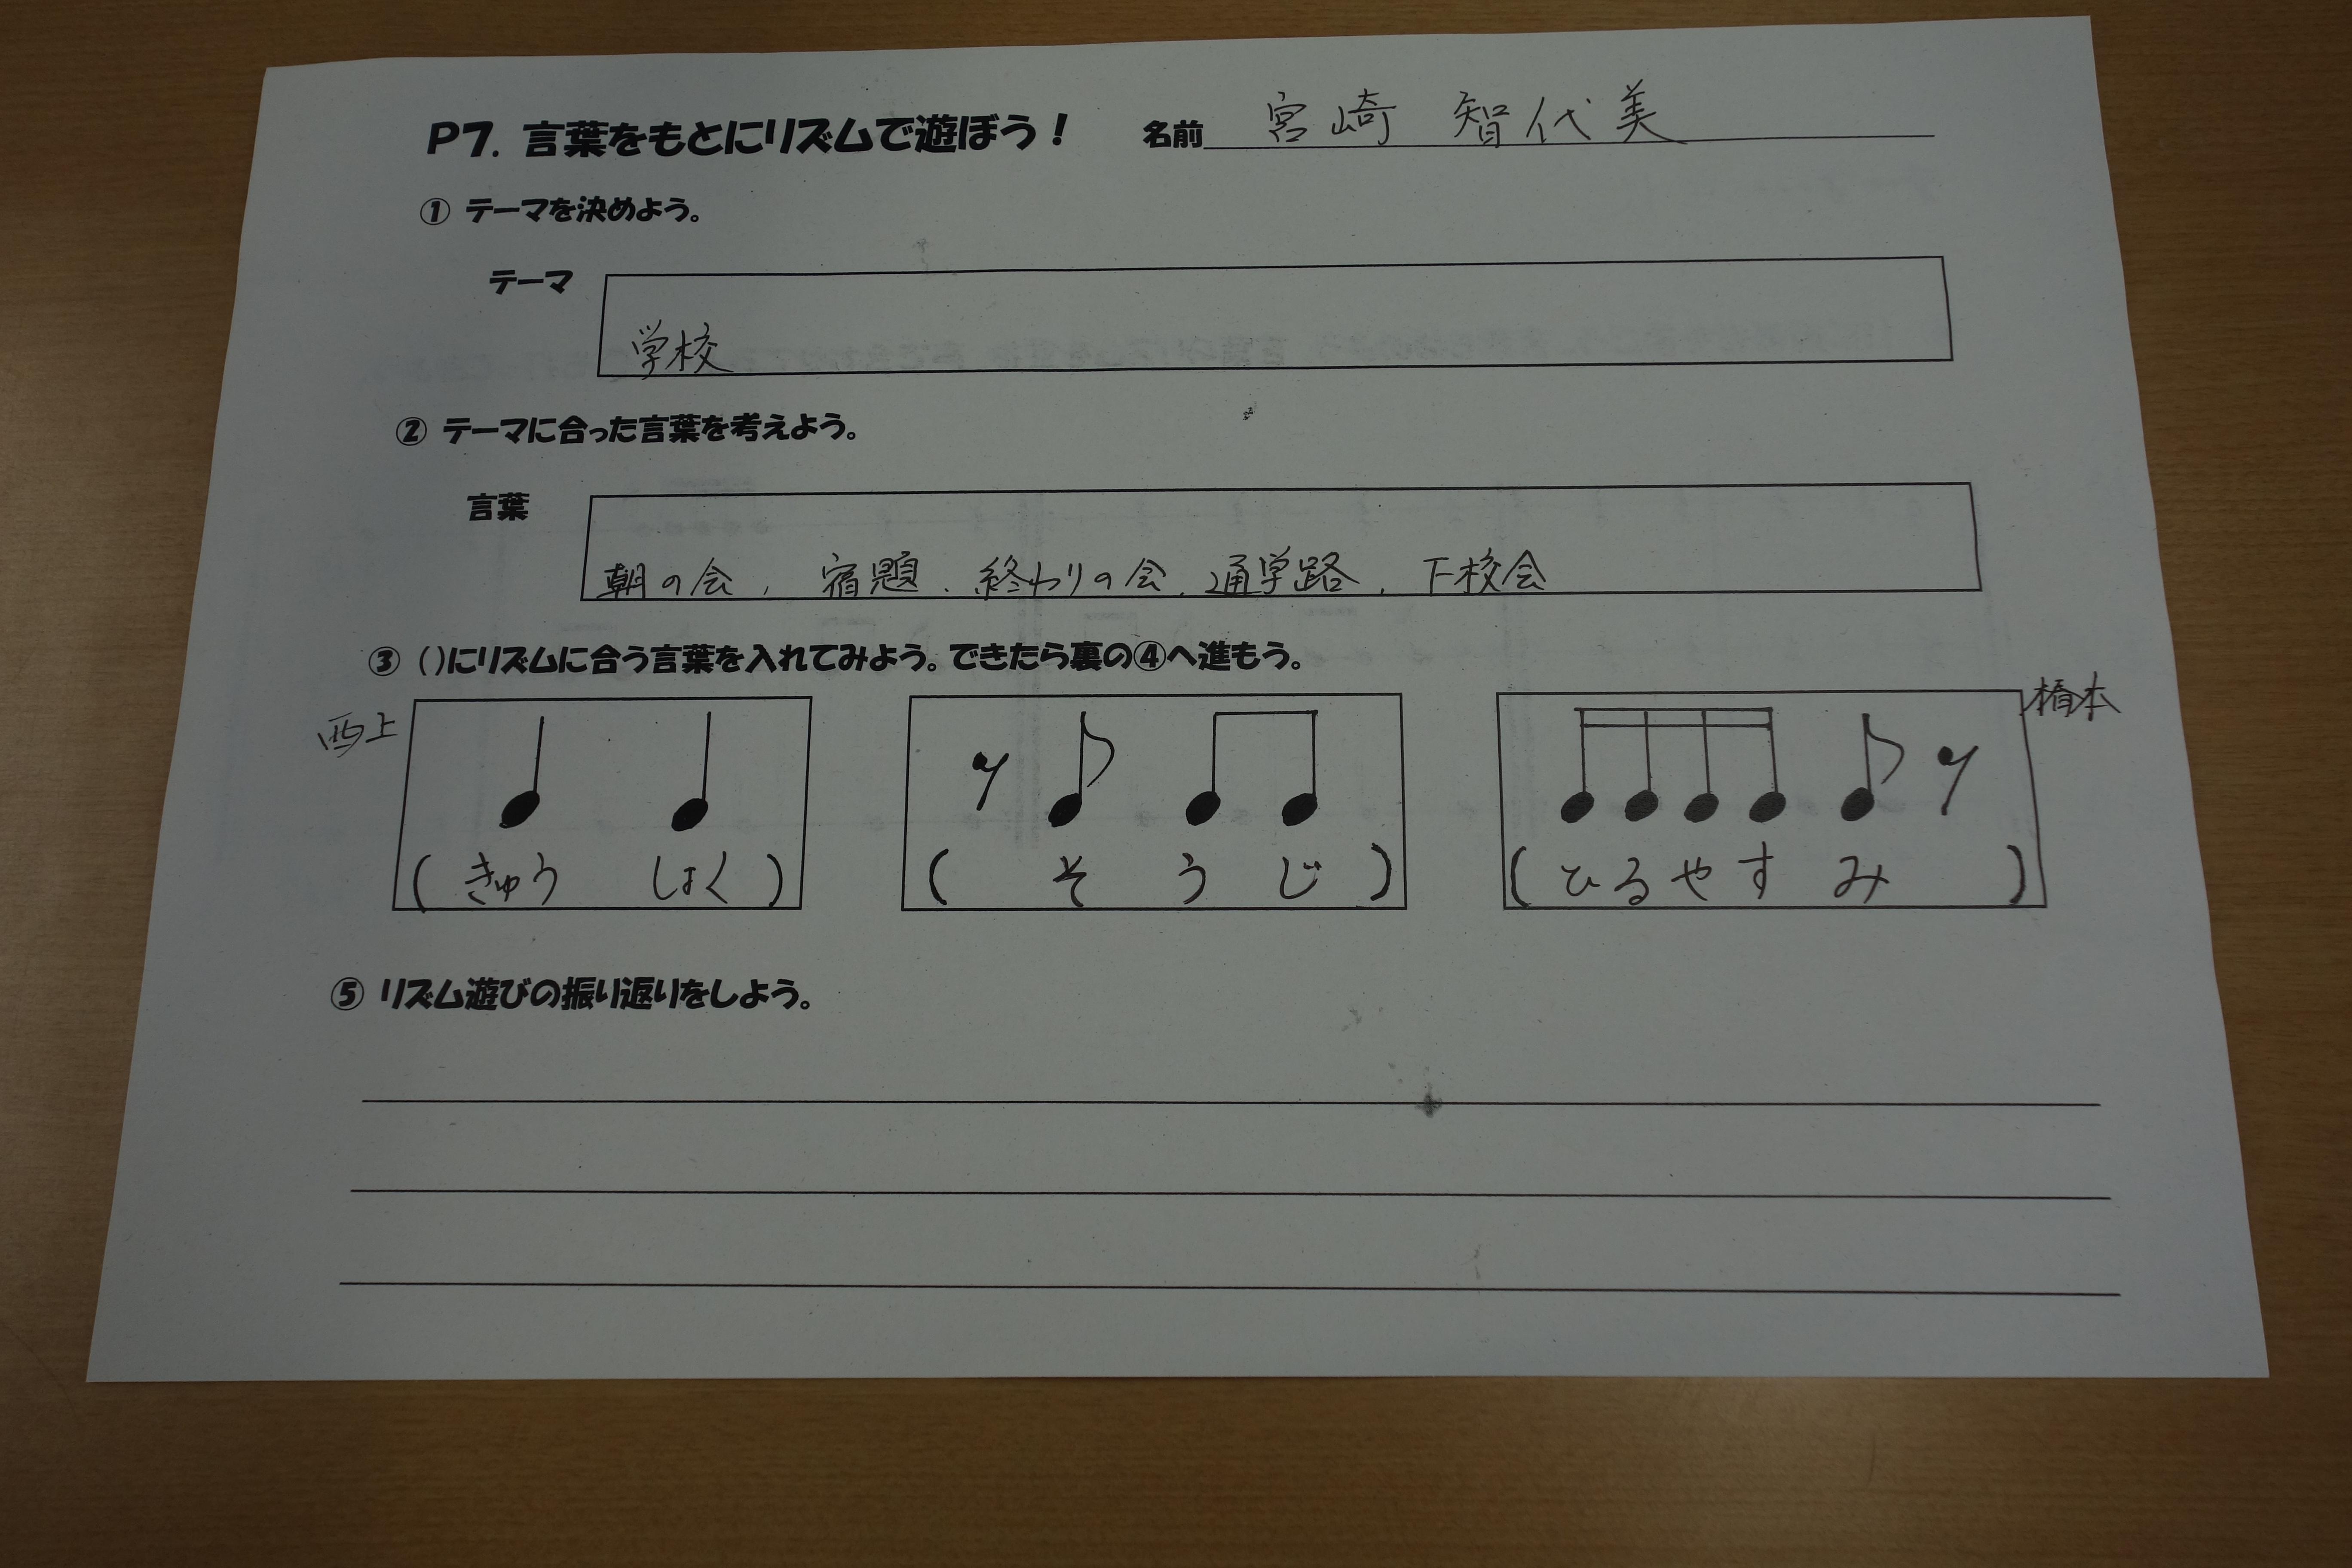 P7. 言葉をもとにリズムで遊ぼう！ 名前 宮崎 智代美
① テーマを決めよう。
テーマ 学校
② テーマに合った言葉を考えよう。
言葉 朝の会、宿題、終わりの会、通学路、下校会
③ ()にリズムに合う言葉を入れてみよう。できたら裏の④へ進もう。
西上
橋本
( きゅう しょく )
( そ う じ )
( ひ る や す み )
⑤ リズム遊びの振り返りをしよう。